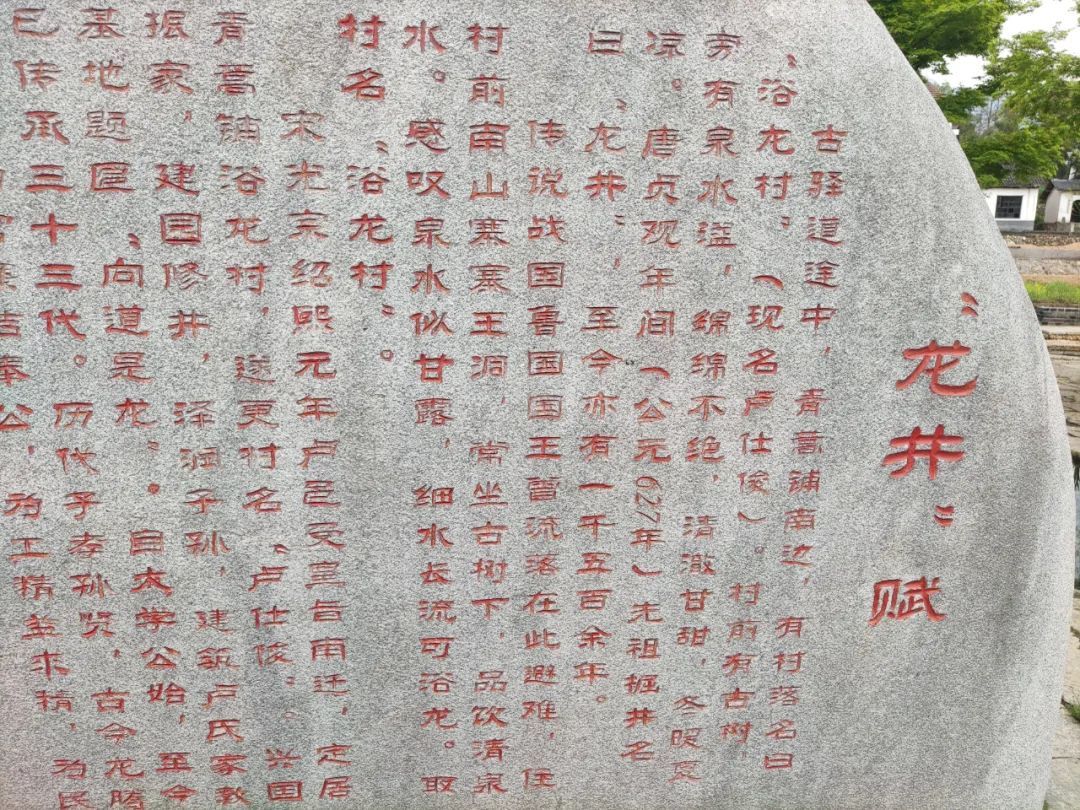 "龙井"赋
古驿道途中，青蒿铺南边，有村落名曰
"浴龙村"（现名卢仕俊）。村前有古树，
旁有泉水溢，绵绵不绝，清澈甘甜，冬暖夏
凉。唐贞观年间（公元627年）先祖掘井名
曰"龙井"，至今亦有一千五百余年。
传说战国鲁国国王曾流落在此避难，住
村前南山寨寨王洞，常坐古树下，品饮清泉
水。感叹泉水似甘露，细水长流可浴龙。取
村名"浴龙村"。
宋光宗绍熙元年卢邑受皇旨南迁，定居
青蒿铺浴龙村，遂更村名"卢仕俊"。兴国
振家，建园修井，泽润子孙，建筑卢氏家教
基地题匾"向道是龙"。自太学公始，至今
已传承三十三代。历代子孝孙贤，古今龙腾
洁奉公，为工精益求精，为民